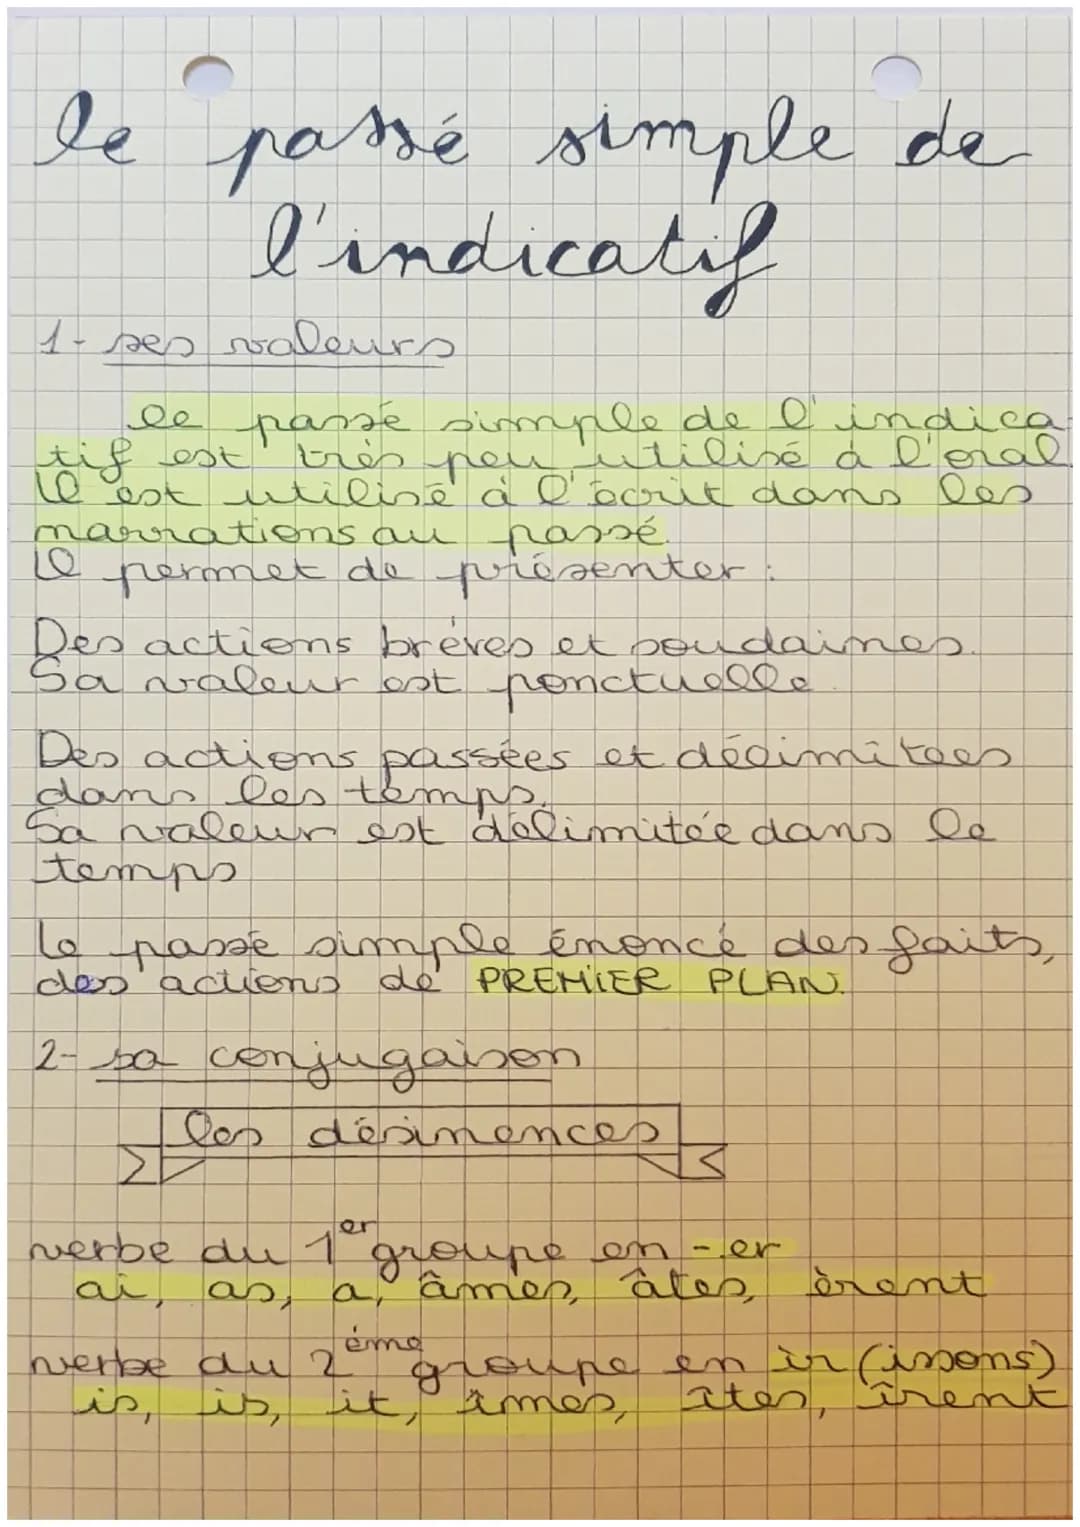 le passé simple de
l'indicatif
1- ses valeurs
le passé simple de l'indica-
tif est très peu utilisé à l'oral.
Il est utilisé à l'écrit dans les
narrations au passé.
Il permet de présenter :
Des actions brèves et soudaines.
Sa valeur est ponctuelle.
Des actions passées et délimitées
dans les temps.
Sa valeur est délimitée dans le
temps
Le passé simple énonce des faits,
des actions de PREMIER PLAN.
2- sa conjugaison
les désinences
verbe du 1er groupe en -er
ai, as, a, âmes, âtes, èrent
verbe du 2ème groupe en ir (issons)
is, is, it, îmes, îtes, îrent